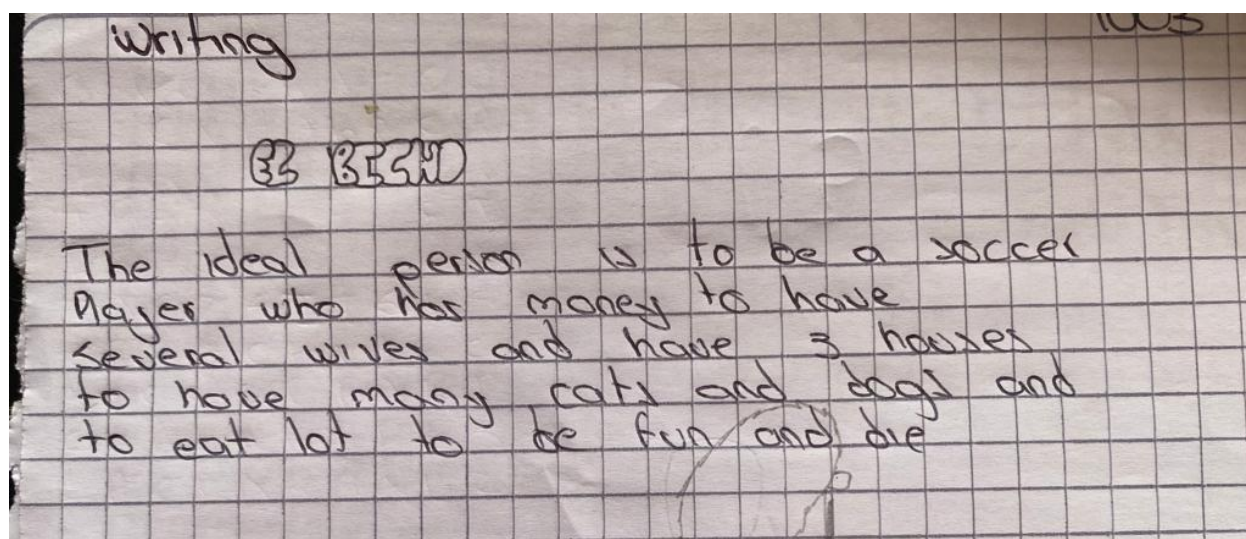 Writing
The ideal person is to be a soccer
player who has money to have
several wives and have 3 houses
to have many cats and dogs and
to eat lot to be fun and die